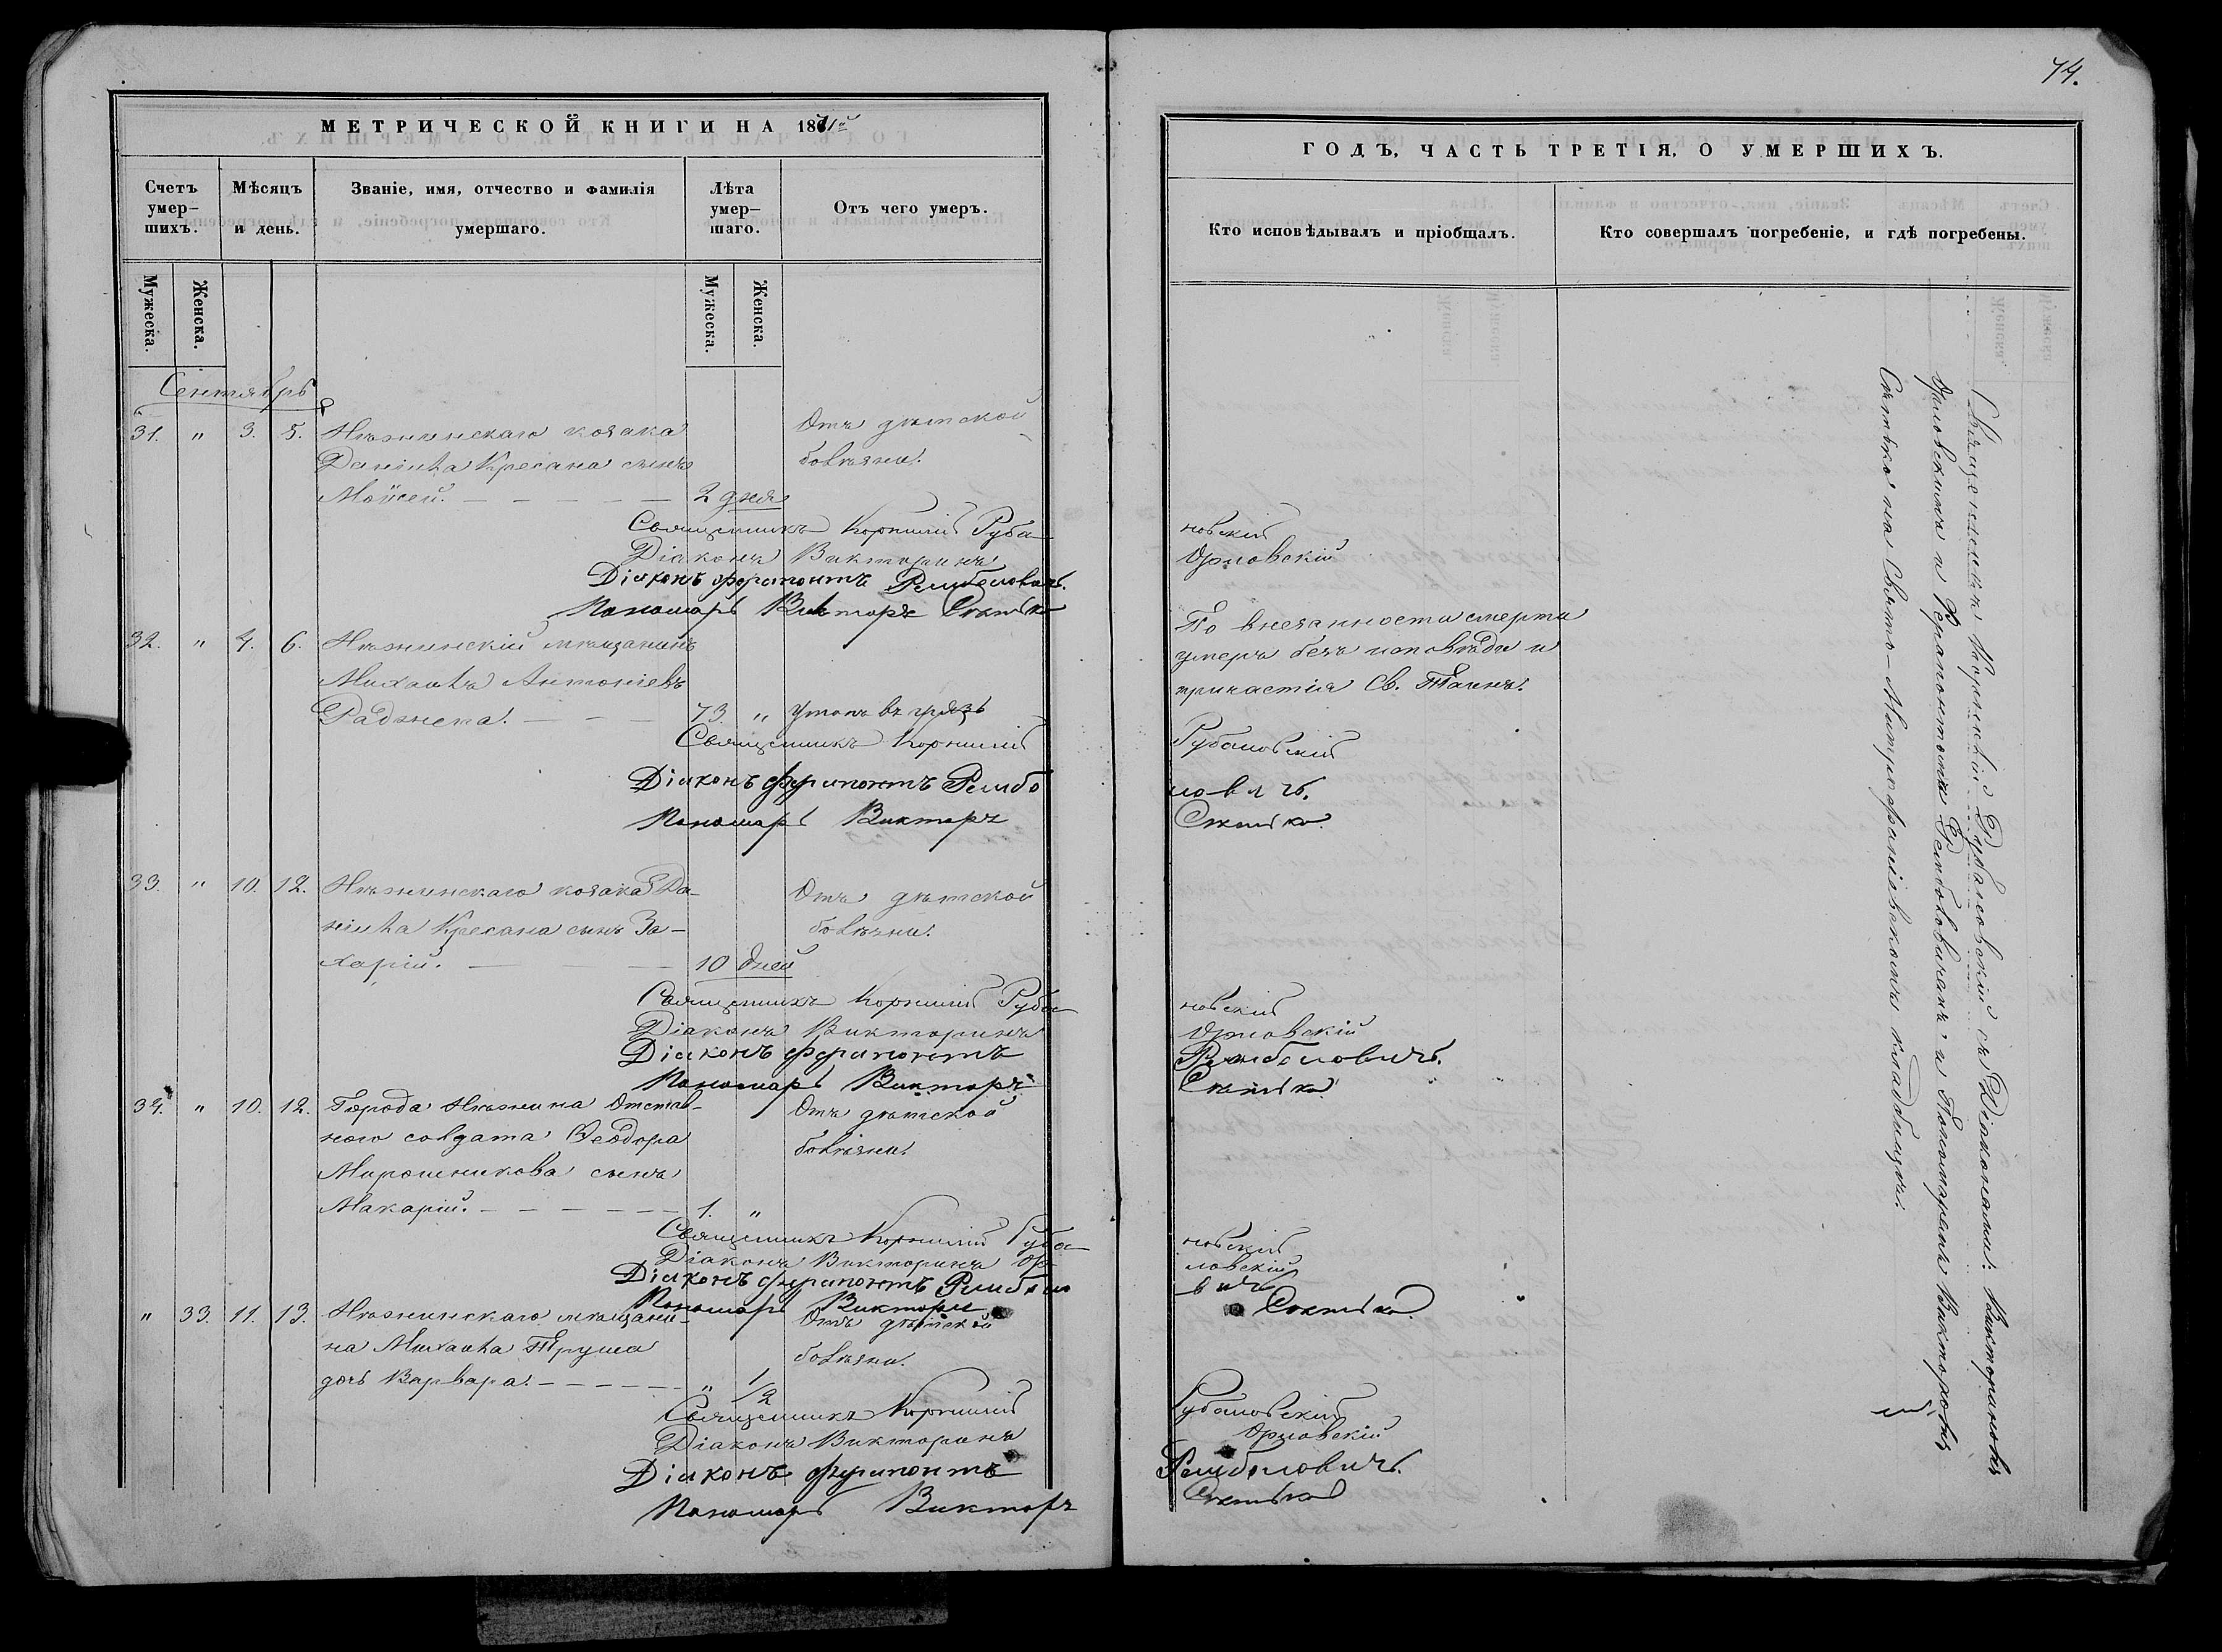 МЕТРИЧЕСКОЙ КНИГИ НА 1871й
Счетъ умер-шихъ.
Мѣсяцъ и день.
Званіе, имя, отчество и фамилія умершаго.
Лѣта умер-шаго.
Отъ чего умеръ.
Мужеска.
Женска.
Мужеска.
Женска.
Сентябрь
31. " 3. 5. Нѣжинскаго козака Отъ дѣтской
Даніила Кресана сынъ болѣзни.
Моѵсей. 2 дня
Священникъ Корнилій Руба
Діаконъ Викторинъ
Діаконъ Ферапонтъ Рымболовичъ.
Пономарь Викторъ
32. " 4. 6. Нѣжинскій мѣщанинъ
Михаилъ Антоніевъ
Раджета. 73. " Утопъ въ грязь
Священникъ Корнилій
Діаконъ Ферапонтъ
Пономарь Викторъ
33. " 10. 12. Нѣжинскаго козака Да- Отъ дѣтской
ніила Кресана сынъ За- болѣзни.
харій. 10 дней
Священникъ Корнилій Руба
Діаконъ Викторинъ
Діаконъ Ферапонтъ
Пономарь Викторъ
34. " 10. 12. Города Нѣжина Отстав- Отъ дѣтской
ного солдата Ѳеодора болѣзни.
Мирошникова сынъ
Макарій. 1. "
Священникъ Корнилій Руба
Діаконъ Викторинъ Ор-
Діаконъ Ферапонтъ
Пономарь Викторъ
" 33. 11. 13. Нѣжинскаго мѣщани- Отъ дѣтской
на Михаила Труша болѣзни.
дочь Варвара. " 1/2
Священникъ Корнилій
Діаконъ Викторинъ
Діаконъ Ферапонтъ
Пономарь Викторъ
74.
ГОДЪ, ЧАСТЬ ТРЕТІЯ, О УМЕРШИХЪ.
Кто исповѣдывалъ и пріобщалъ.
Кто совершалъ погребеніе, и гдѣ погребены.
новскій
Орловскій
По внезапности смерти
умеръ безъ исповѣди и
причастія Св. Таинъ.
Рубановскій
новскій
Орловскій
новскій
ловскій
Рубановскій
Орловскій
Священникъ Корнилій Рубановскій съ Діаконами: Викториномъ
Орловскимъ и Ферапонтомъ и Пономаремъ Викторомъ
на Свято-Митрофаніевскомъ кладбищѣ.